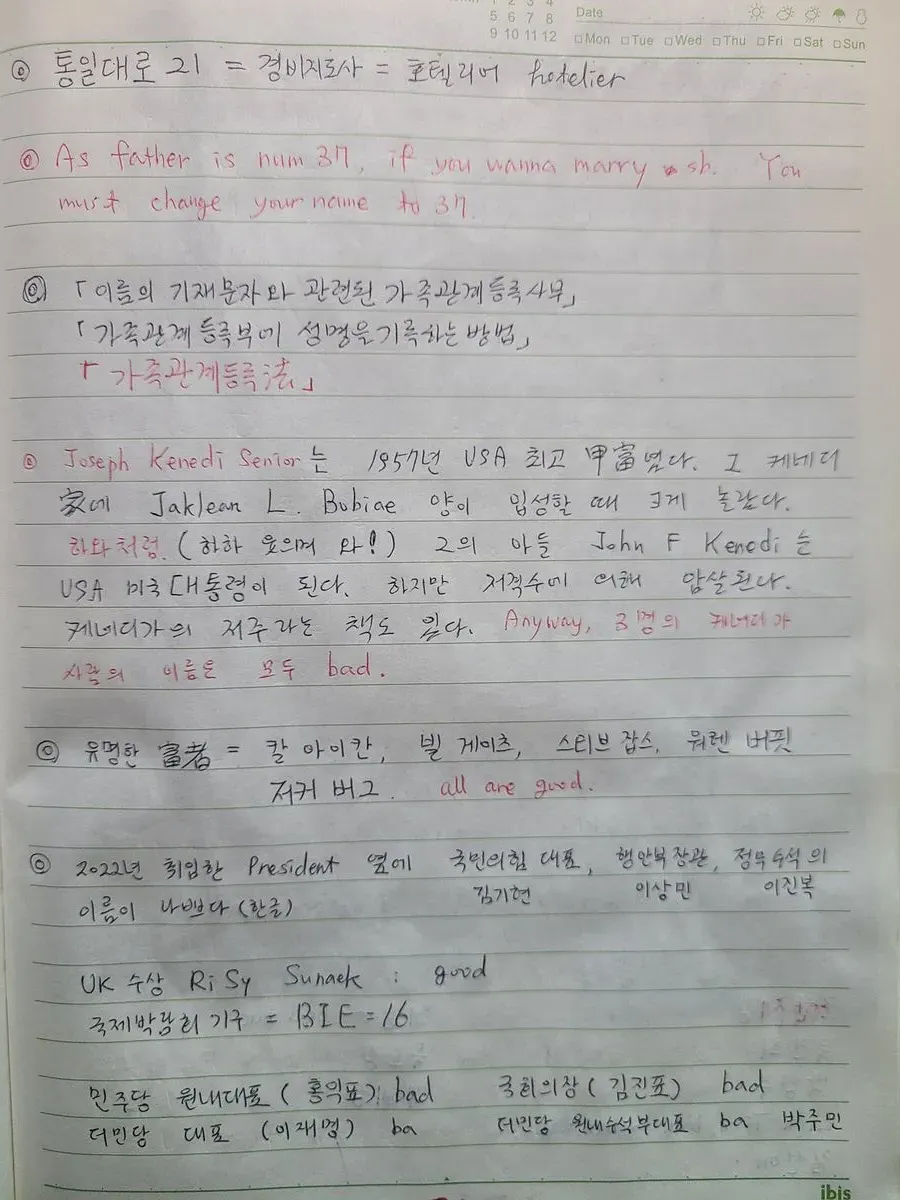 1 2 3 4
5 6 7 8
9 10 11 12
Date
□Mon □Tue □Wed □Thu □Fri □Sat □Sun
◎ 통일대로 21 = 경비지도사 = 호텔리어 hotelier
◎ As father is num 37, if you wanna marry sb. You
must change your name to 37.
◎ 「이름의 기재문자와 관련된 가족관계등록사무」
「가족관계등록부에 성명을 기록하는 방법」
「가족관계등록法」
◎ Joseph Kenedi Senior는 1957년 USA 최고 甲富였다. 그 케네디
家에 Jaklean L. Bubiae 양이 입성할 때 크게 놀랐다.
하와처럼. (하하 웃으며 와!) 그의 아들 John F Kenedi는
USA 미국 대통령이 된다. 하지만 저격수에 의해 암살된다.
케네디가의 저주라는 책도 있다. Anyway, 3명의 케네디가
사람의 이름은 모두 bad.
◎ 유명한 富者 = 칼 아이칸, 빌 게이츠, 스티브 잡스, 워렌 버핏
저커 버그. all are good.
◎ 2022년 취임한 President 옆에 국민의힘 대표, 행안부장관, 정무수석의
김기현 이상민 이진복
이름이 나쁘다 (한글)
UK 수상 RiSy Sunaek : good
국제박람회 기구 = BIE = 16
민주당 원내대표 (홍익표) bad 국회의장 (김진표) bad
더민당 대표 (이재명) ba 더민당 원내수석부대표 ba 박주민
ibis